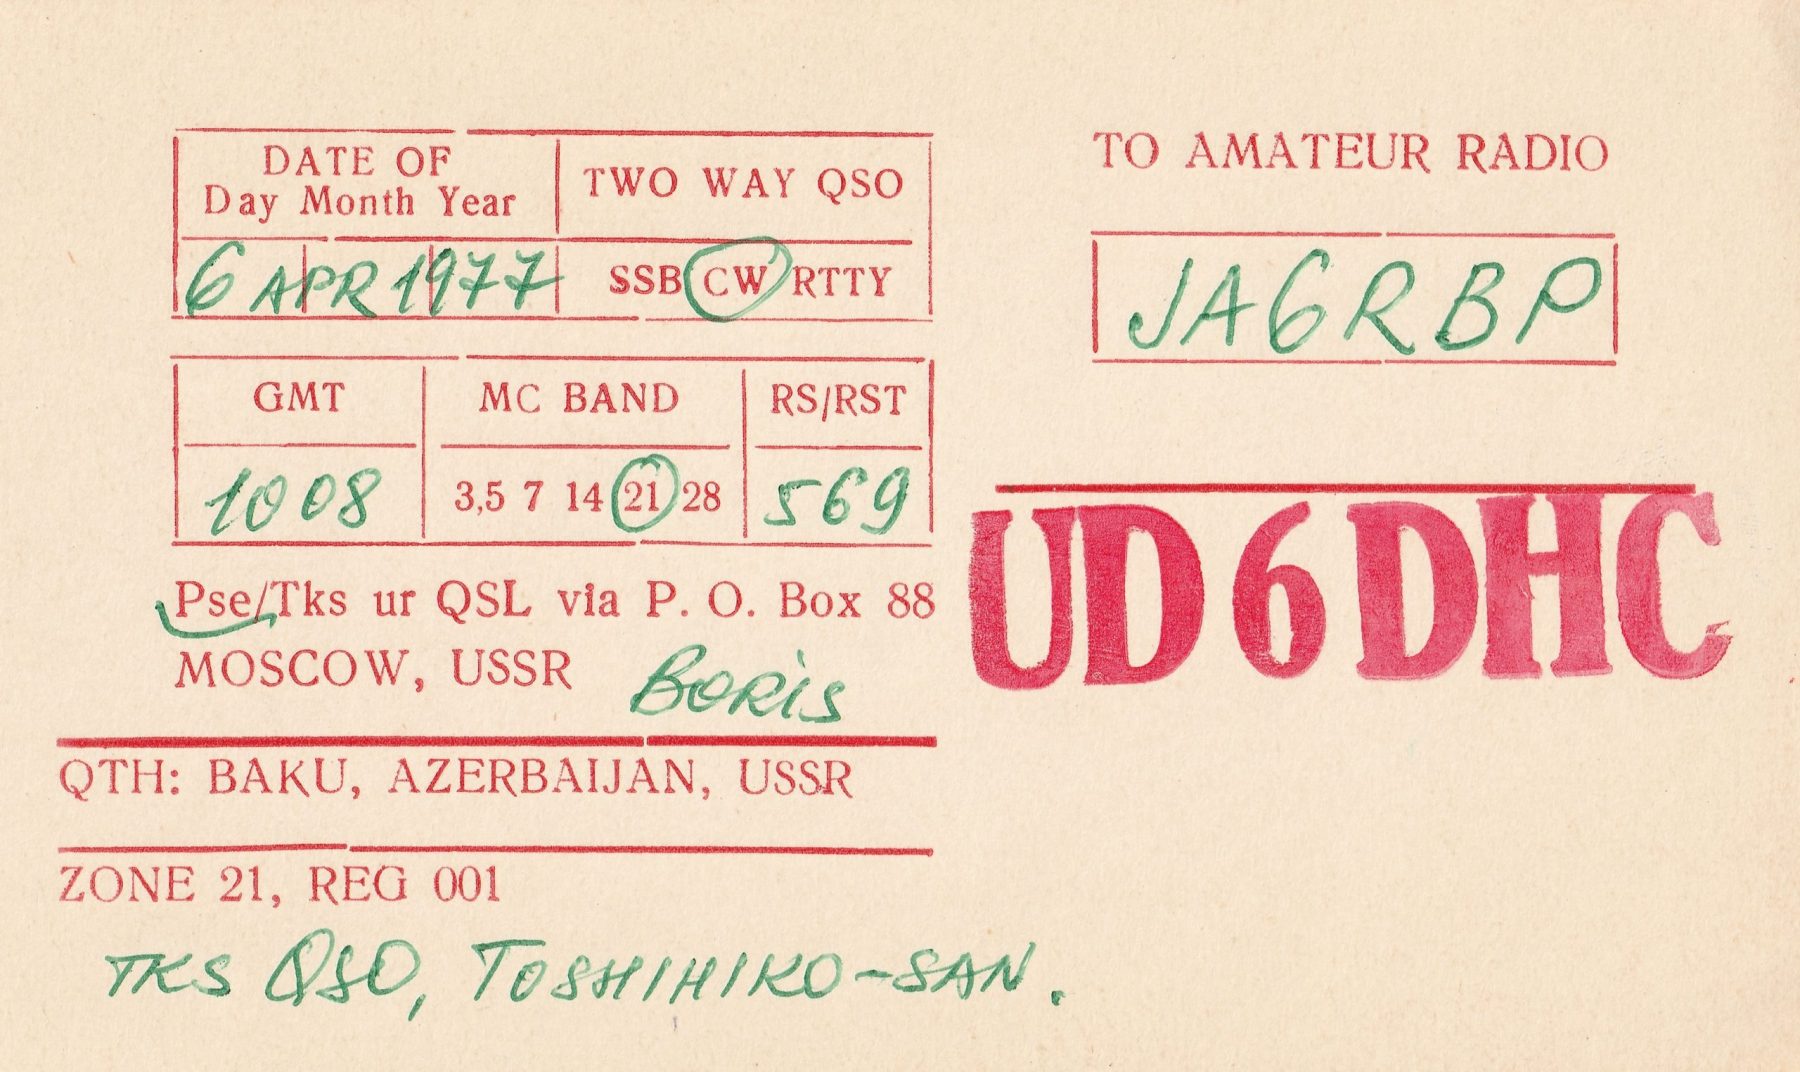 DATE OF
Day Month Year
TWO WAY QSO
6 APR 1977
SSB CW RTTY
GMT
MC BAND
RS/RST
1008
3,5 7 14 21 28
569
Pse/Tks ur QSL via P. O. Box 88
MOSCOW, USSR
Boris
QTH: BAKU, AZERBAIJAN, USSR
ZONE 21, REG 001
TKS QSO, TOSHIHIKO-SAN.
TO AMATEUR RADIO
JA6RBP
UD6DHC